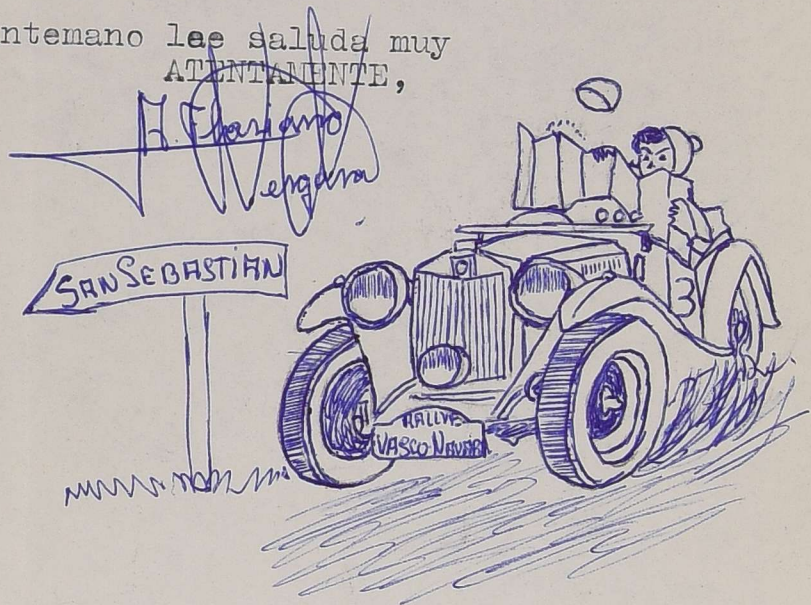 ntemano les saluda muy
ATENTAMENTE,
A. Floriano
Vergara
SAN SEBASTIAN
3
RALLYE
VASCO-NAVARRO